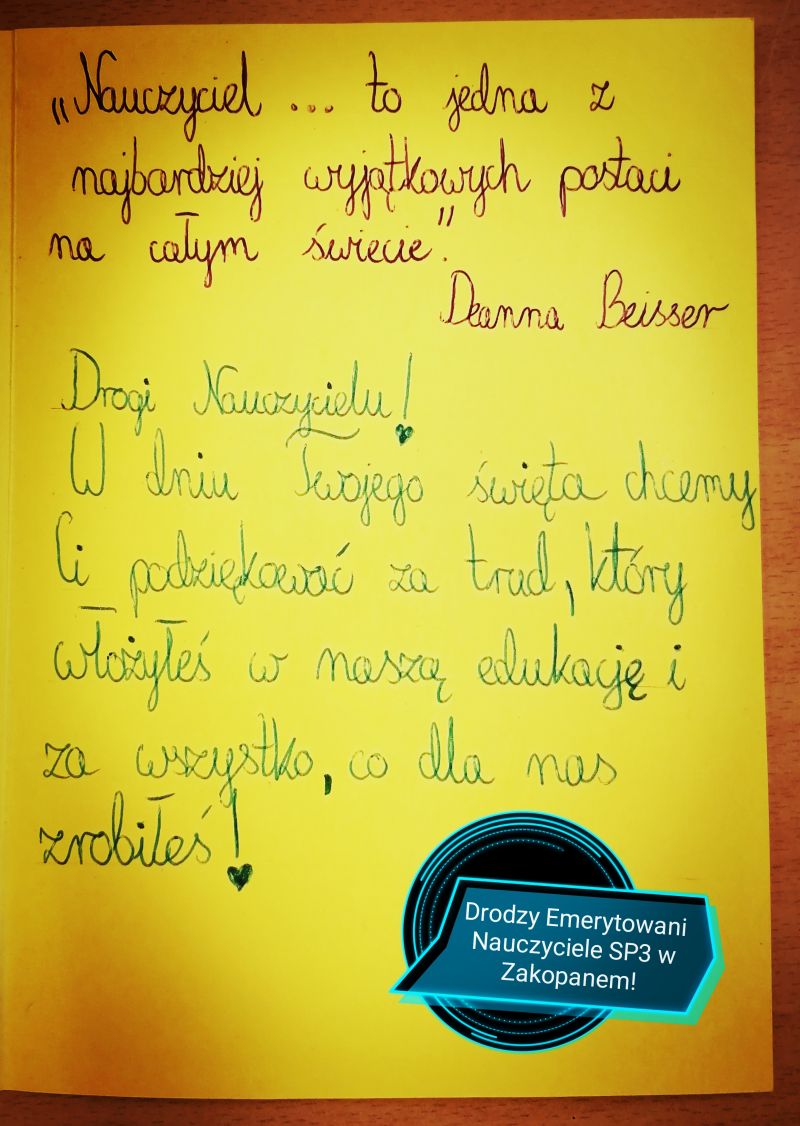 „Nauczyciel ... to jedna z
najbardziej wyjątkowych postaci
na całym świecie".
Deanna Beisser
Drogi Nauczycielu!
W dniu Twojego święta chcemy
Ci podziękować za trud, który
włożyłeś w naszą edukację i
za wszystko, co dla nas
zrobiłeś!
Drodzy Emerytowani
Nauczyciele SP3 w
Zakopanem!